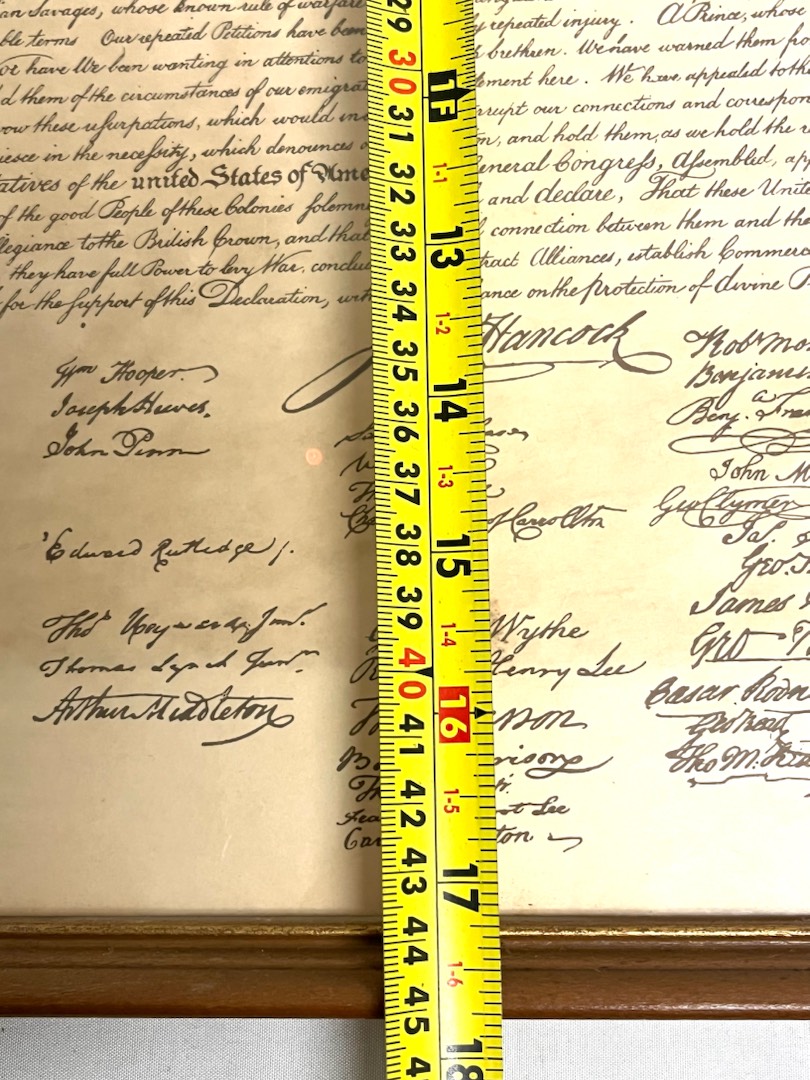 an Savages, whose known rule of warfare
ble terms Our repeated Petitions have been repeated injury. A Prince, whose
or have We been wanting in attentions to brethren. We have warned them fro
d them of the circumstances of our emigrat ement here. We have appealed to th
vow these usurpations, which would in rrupt our connections and correspon
iesce in the necessity, which denounces and hold them, as we hold the
atives of the united States of Ame eneral Congress, Assembled, app
of the good People of these Colonies solemn and declare, That these Unit
llegiance to the British Crown, and that connection between them and the
they have full Power to levy War, conclu tract Alliances, establish Commerc
for the support of this Declaration, wit ance on the protection of divine P
Hancock
Wm Hooper
Joseph Hewes,
John Penn
Edward Rutledge /.
Thos Heyward Junr.
Thomas Lynch Junr.
Arthur Middleton
of Carrollton
Wythe
Henry Lee
son
rison
ot Lee
ton
Robt Mo
Benjamin
Benj. Fra
John M
Geo Clymer
Ja. S
Geo. T
James
Geo
Caesar Rodn
Geo Read
Tho M. Ke
29
30
31
32
33
34
35
36
37
38
39
40
41
42
43
44
45
4
1F
1-1
13
1-2
14
1-3
15
1-4
16
1-5
17
1-6
18